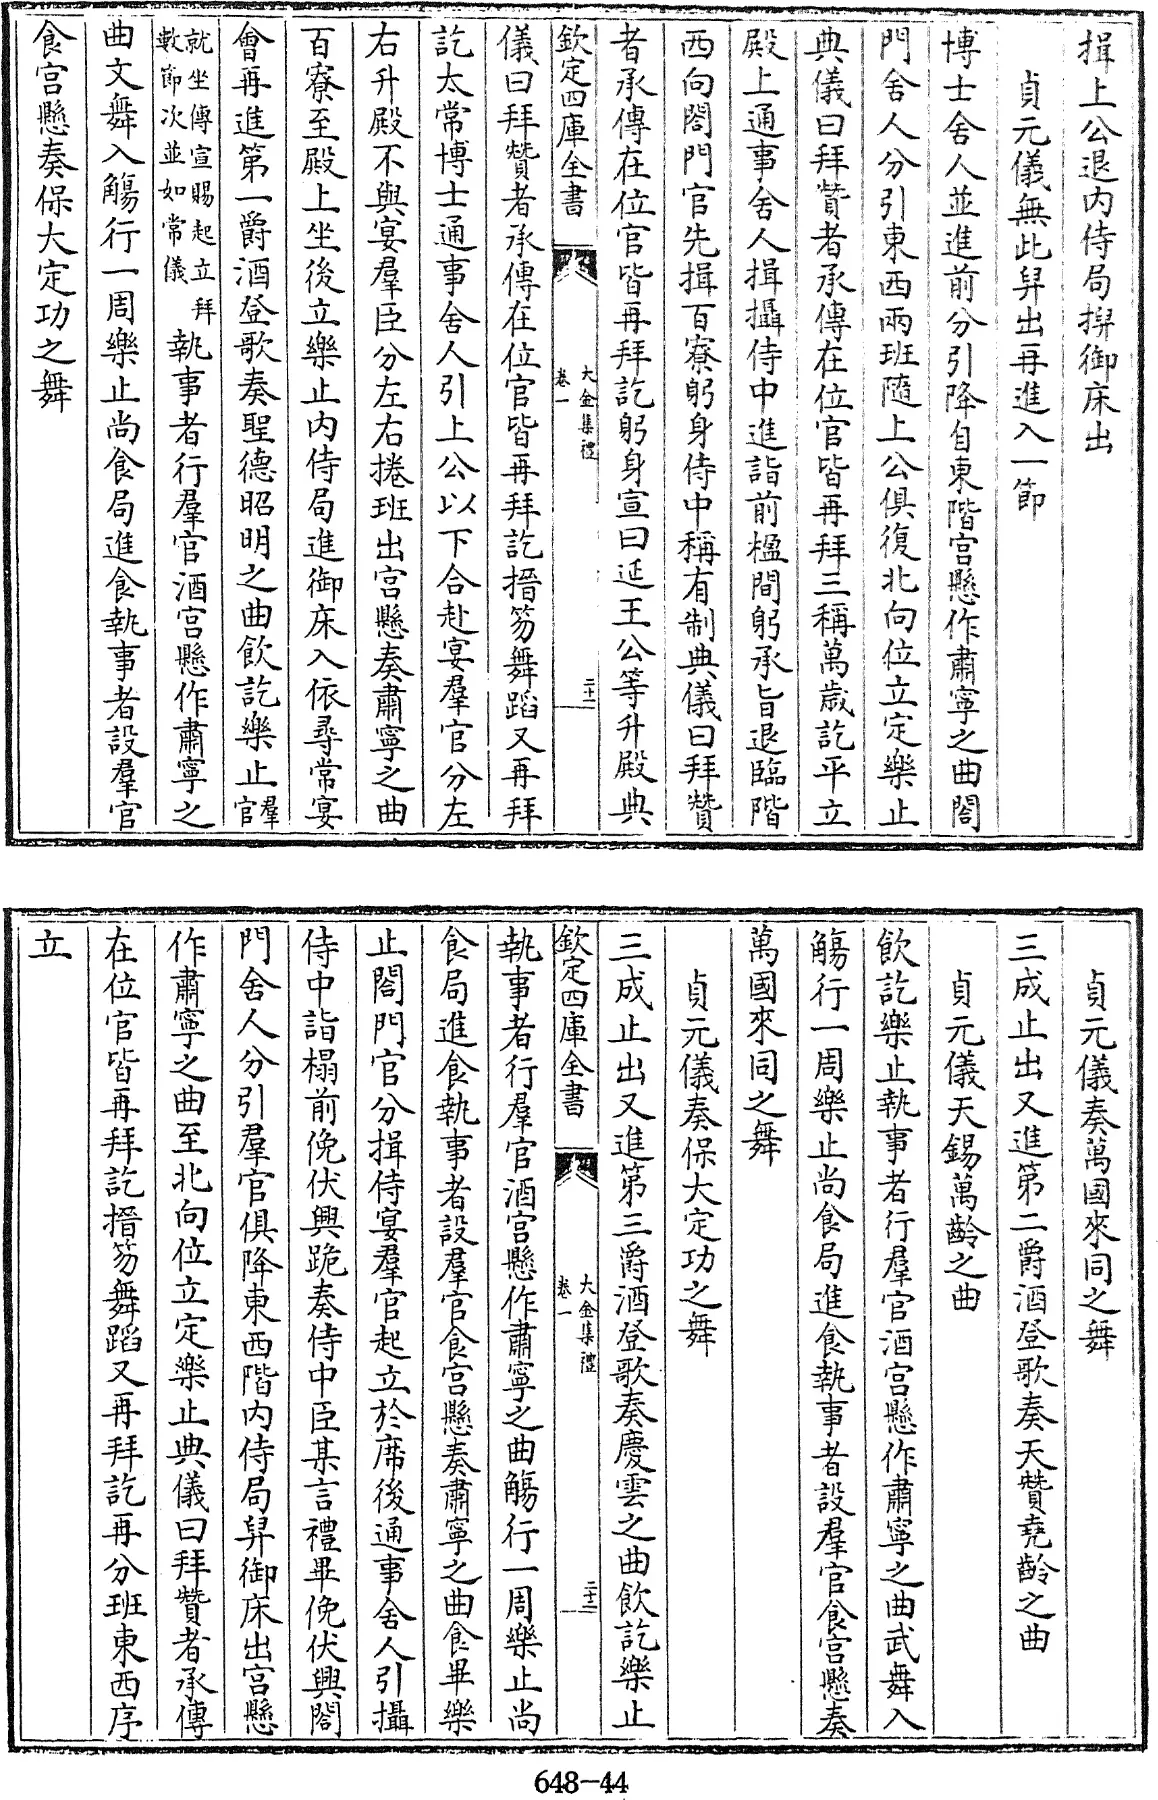 揖上公退内侍局㨾御床出
貞元儀無此舁出再進入一節
博士舍人並進前分引降自東階宫懸作肅寧之曲閤
門舍人分引東西兩班隨上公俱復北向位立定樂止
典儀曰拜贊者承傳在位官皆再拜三稱萬歲訖平立
殿上通事舍人揖攝侍中進詣前楹間躬承旨退臨階
西向閤門官先揖百寮躬身侍中稱有制典儀曰拜贊
者承傳在位官皆再拜訖躬身宣曰延王公等升殿典
欽定四庫全書
大金集禮
卷一
二十一
儀曰拜贊者承傳在位官皆再拜訖搢笏舞蹈又再拜
訖太常博士通事舍人引上公以下合赴宴羣官分左
右升殿不與宴羣臣分左右捲班出宫懸奏肅寧之曲
百寮至殿上坐後立樂止内侍局進御床入依尋常宴
會再進第一爵酒登歌奏聖德昭明之曲飲訖樂止羣官
就坐傳宣賜起立拜
數節次並如常儀
執事者行羣官酒宫懸作肅寧之
曲文舞入觴行一周樂止尚食局進食執事者設羣官
食宫懸奏保大定功之舞
貞元儀奏萬國來同之舞
三成止出又進第二爵酒登歌奏天贊堯齡之曲
貞元儀天錫萬齡之曲
飲訖樂止執事者行羣官酒宫懸作肅寧之曲武舞入
觴行一周樂止尚食局進食執事者設羣官食宫懸奏
萬國來同之舞
貞元儀奏保大定功之舞
三成止出又進第三爵酒登歌奏慶雲之曲飲訖樂止
欽定四庫全書
大金集禮
卷一
二十二
執事者行羣官酒宫懸作肅寧之曲觴行一周樂止尚
食局進食執事者設羣官食宫懸奏肅寧之曲食畢樂
止閤門官分揖侍宴羣官起立於席後通事舍人引攝
侍中詣榻前俛伏興跪奏侍中臣某言禮畢俛伏興閤
門舍人分引羣官俱降東西階内侍局舁御床出宫懸
作肅寧之曲至北向位立定樂止典儀曰拜贊者承傳
在位官皆再拜訖搢笏舞蹈又再拜訖再分班東西序
立
648-44